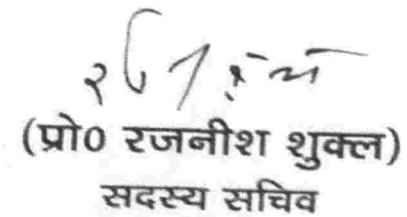 (प्रो0 रजनीश शुक्ल)
सदस्य सचिव